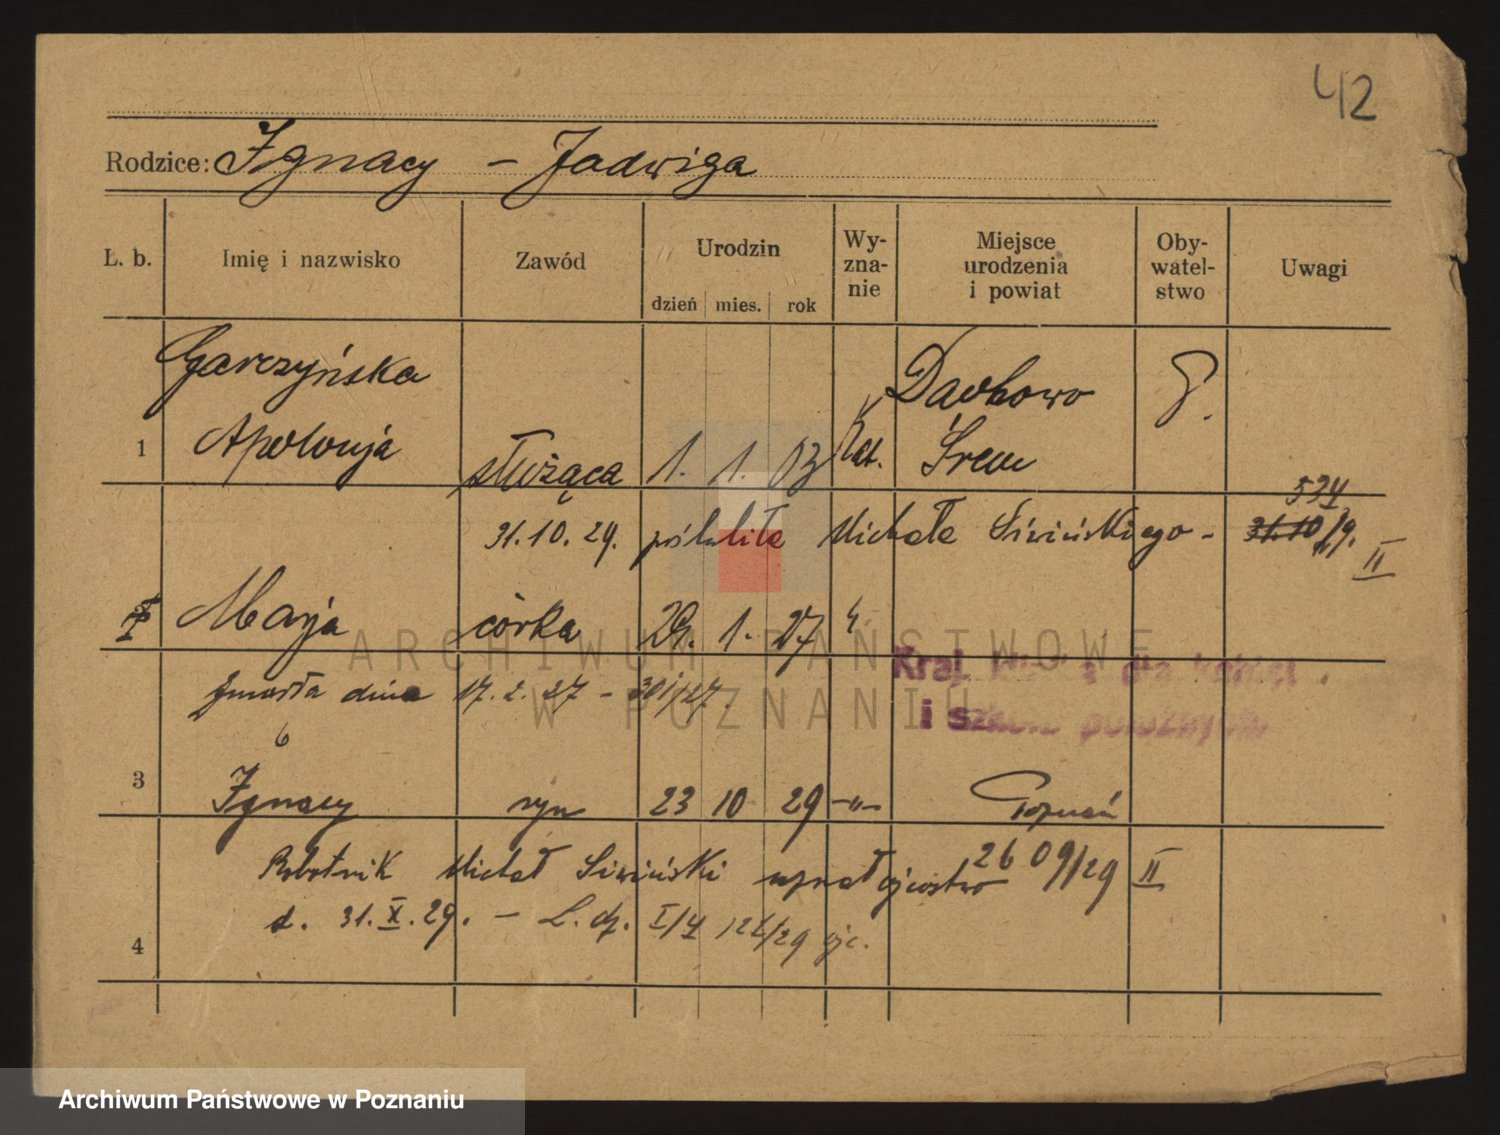 42
Rodzice: Ignacy - Jadwiga
L. b. Imię i nazwisko Zawód Urodzin dzień mies. rok Wy-zna-nie Miejsce urodzenia i powiat Oby-watel-stwo Uwagi
Garczyńska Dachowo P.
1 Apolonja służąca 1. 1. 03 Kat. Śrem
534
31.10.29. poślubiła Michała Siwińskiego - 31.10./29. II
Marja córka 29. 1. 27 "
Kraj. dla kobiet
zmarła dnia 17. 2. 27 -
i szkoła położnych.
3 Ignacy syn 23 10 29 -"- Poznań
Robotnik Michał Siwiński uznał ojcostwo 2609/29 II
d. 31.X.29. - L. dz. I/4 /29 ojc.
4
ARCHIWUM PAŃSTWOWE
W POZNANIU
Archiwum Państwowe w Poznaniu